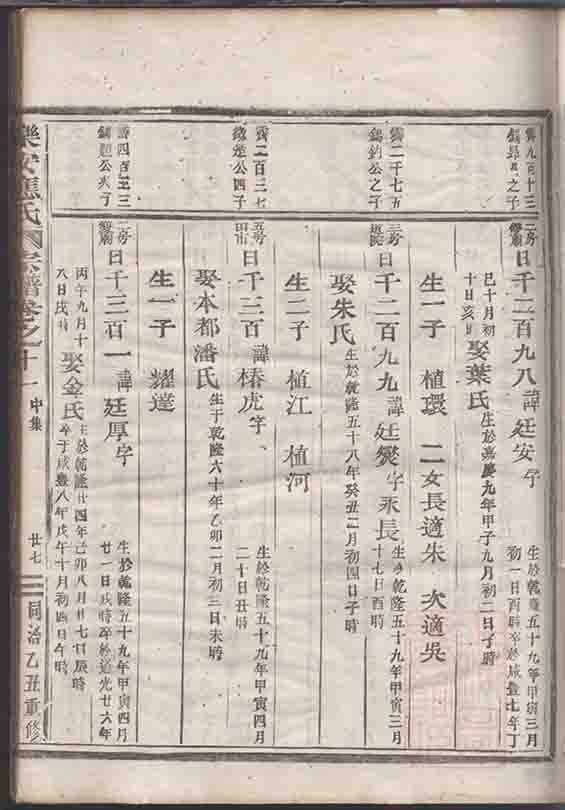 雋九百十三
錫昂公之子
二房
日千二百九八諱廷安字
生於乾隆五十九年甲寅三月
初一日酉時卒於咸豐七年丁
巳十月初
十日亥時
娶葉氏
生於嘉慶九年甲子九月初二日子時
生一子 植環 二女長適朱 次適吳
雋二千七五
錫鈞公之子
三房
日千二百九九諱廷燮字永長
生於乾隆五十九年甲寅三月
十七日酉時
娶朱氏
生於乾隆五十八年癸丑二月初四日子時
生二子 植江 植河
雋二百三七
公四子
五房
田市
日千三百諱榛虎字
生於乾隆五十九年甲寅四月
二十日丑時
娶本都潘氏
生于乾隆六十年乙卯二月初三日未時
生一子 耀達
四百三
公之子
二房
日千三百一諱廷厚字
生於乾隆五十九年甲寅四月
廿一日戌時卒於道光廿六年
丙午九月十
八日戌時
娶金氏
生於乾隆廿四年己卯八月廿七日辰時
卒于咸豐八年戊午十月初四日午時
樂安應氏宗譜卷之十一 中集 廿七 同治乙丑重修